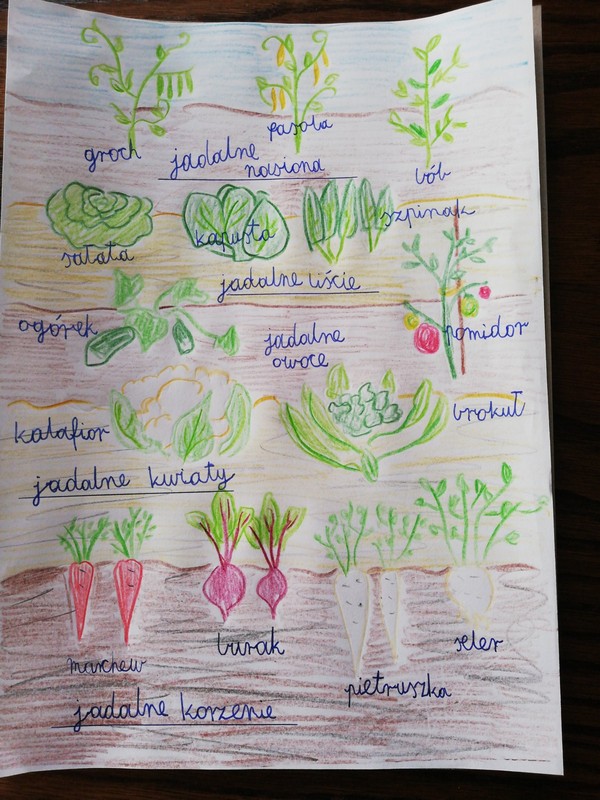 groch
fasola
bób
jadalne
nasiona
sałata
kapusta
szpinak
jadalne liście
ogórek
jadalne
owoce
pomidor
kalafior
brokuł
jadalne kwiaty
marchew
burak
pietruszka
seler
jadalne korzenie